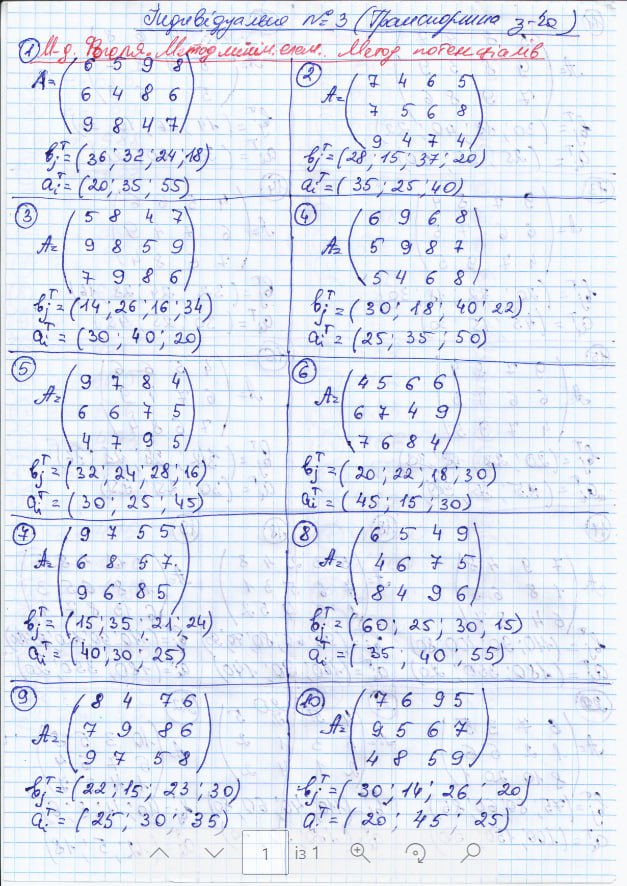 Індивідуальна № 3 (Транспортна з-ча)
М-д. Фогеля. Метод мінім. елем. Метод потенціалів
① A = (6 5 9 8
6 4 8 6
9 8 4 7)
bⱼᵀ = (36; 32; 24; 18)
aᵢᵀ = (20; 35; 55)
② A = (7 4 6 5
7 5 6 8
9 4 7 4)
bⱼᵀ = (28; 15; 37; 20)
aᵢᵀ = (35; 25; 40)
③ A = (5 8 4 7
9 8 5 9
7 9 8 6)
bⱼᵀ = (14; 26; 16; 34)
aᵢᵀ = (30; 40; 20)
④ A = (6 9 6 8
5 9 8 7
5 4 6 8)
bⱼᵀ = (30; 18; 40; 22)
aᵢᵀ = (25; 35; 50)
⑤ A = (9 7 8 4
6 6 7 5
4 7 9 5)
bⱼᵀ = (32; 24; 28; 16)
aᵢᵀ = (30; 25; 45)
⑥ A = (4 5 6 6
6 7 4 9
7 6 8 4)
bⱼᵀ = (20; 22; 18; 30)
aᵢᵀ = (45; 15; 30)
⑦ A = (9 7 5 5
6 8 5 7
9 6 8 5)
bⱼᵀ = (15; 35; 21; 24)
aᵢᵀ = (40; 30; 25)
⑧ A = (6 5 4 9
4 6 7 5
8 4 9 6)
bⱼᵀ = (60; 25; 30; 15)
aᵢᵀ = (35; 40; 55)
⑨ A = (8 4 7 6
7 9 8 6
9 7 5 8)
bⱼᵀ = (22; 15; 23; 30)
aᵢᵀ = (25; 30; 35)
⑩ A = (7 6 9 5
9 5 6 7
4 8 5 9)
bⱼᵀ = (30; 14; 26; 20)
aᵢᵀ = (20; 45; 25)
1 із 1